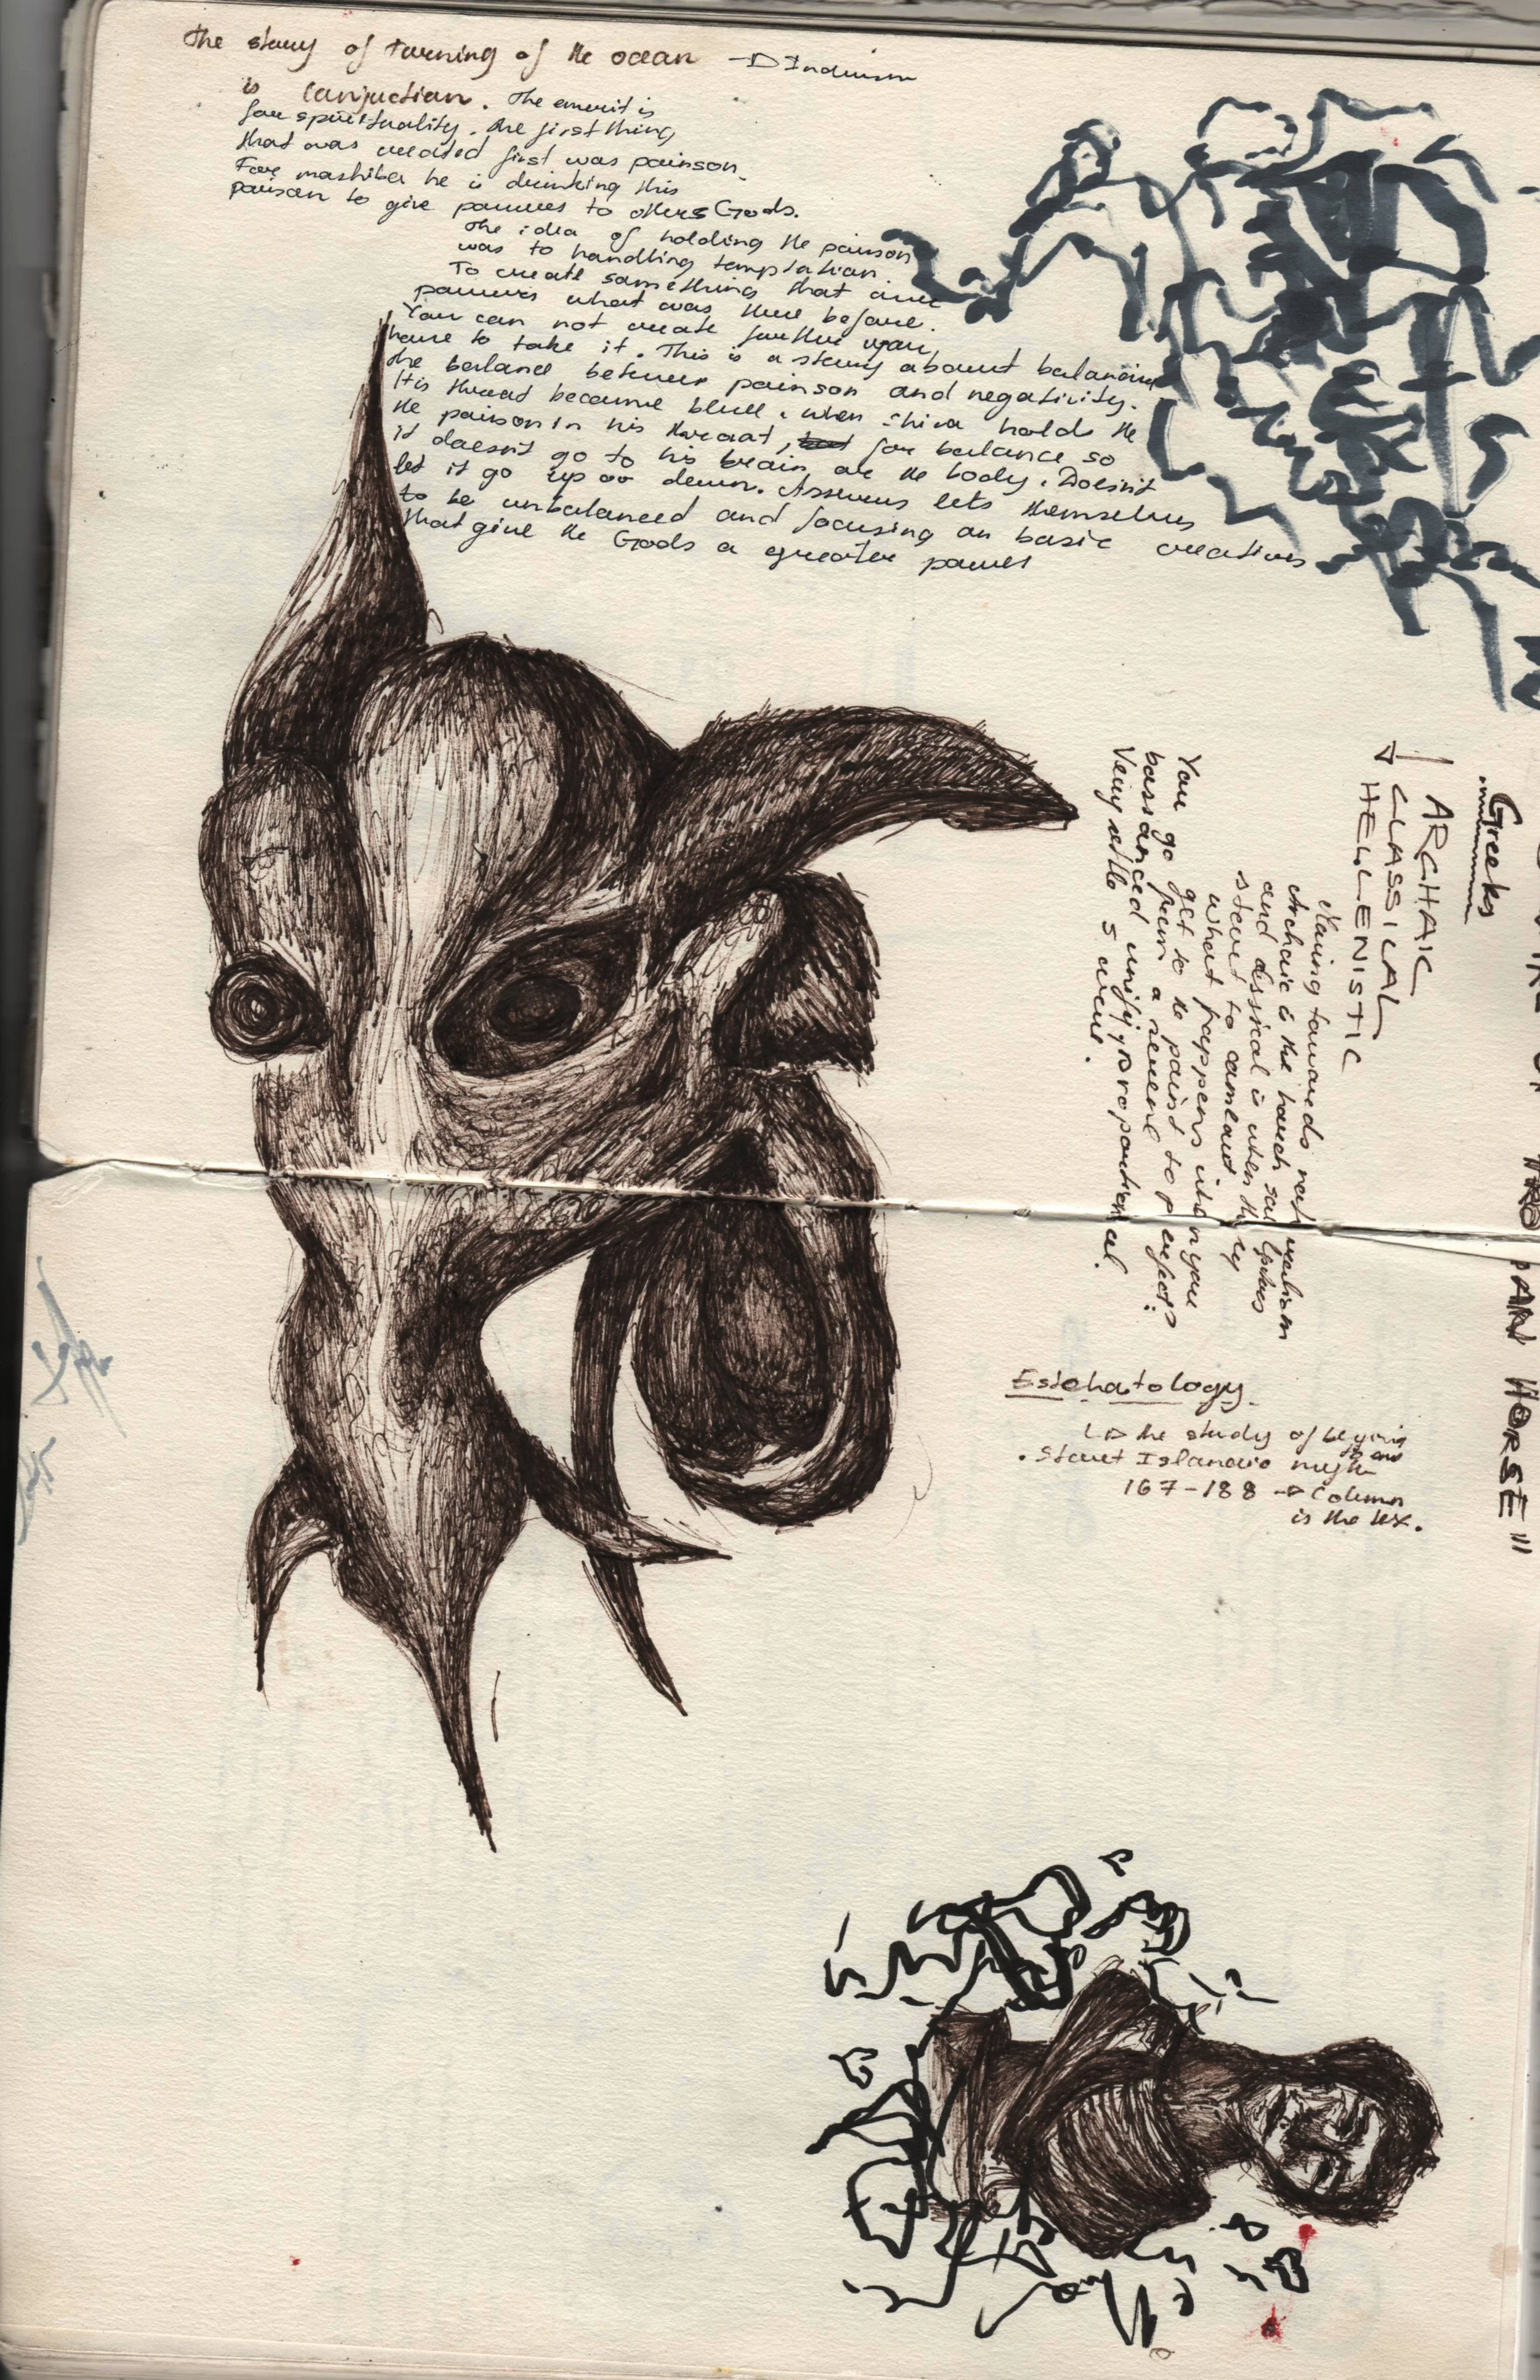 The story of turning of the ocean → Induism
is conjuction. The emerit is
for spirituality. The first thing
that was created first was poinson.
For mashiba he is drinking this
poison to give powers to others Gods.
The idea of holding the poison
was to handling temptation.
To create something that
powers what was there before.
You can not create further you
have to take it. This is a story about balancing
the balance between poinson and negativity.
His throat became blue, when Shiva holds the
the poison in his throat, for balance so
it doesn't go to his brain or the body. Doesn't
let it go up or down. Assurus lets themselves
to be unbalanced and focusing on basic creations
that give the Gods a greater power
Greeks
ARCHAIC
CLASSICAL
HELLENISTIC
Moving towards
Archaic is the
and classical is when they
start to
what happens when you
You go get to the point to perfect
from a
unify proportional.
Very settle
"AN HORSE"
Estchatology
↳ the study of
. Start Islandic myth
167-188 → Column
is the tex.